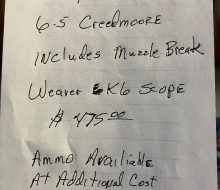 6.5 CreedmooRE
INcludes Muzzle Break
Weaver K6 Scope
$ 475.00
Ammo Availiable
At Additional Cost